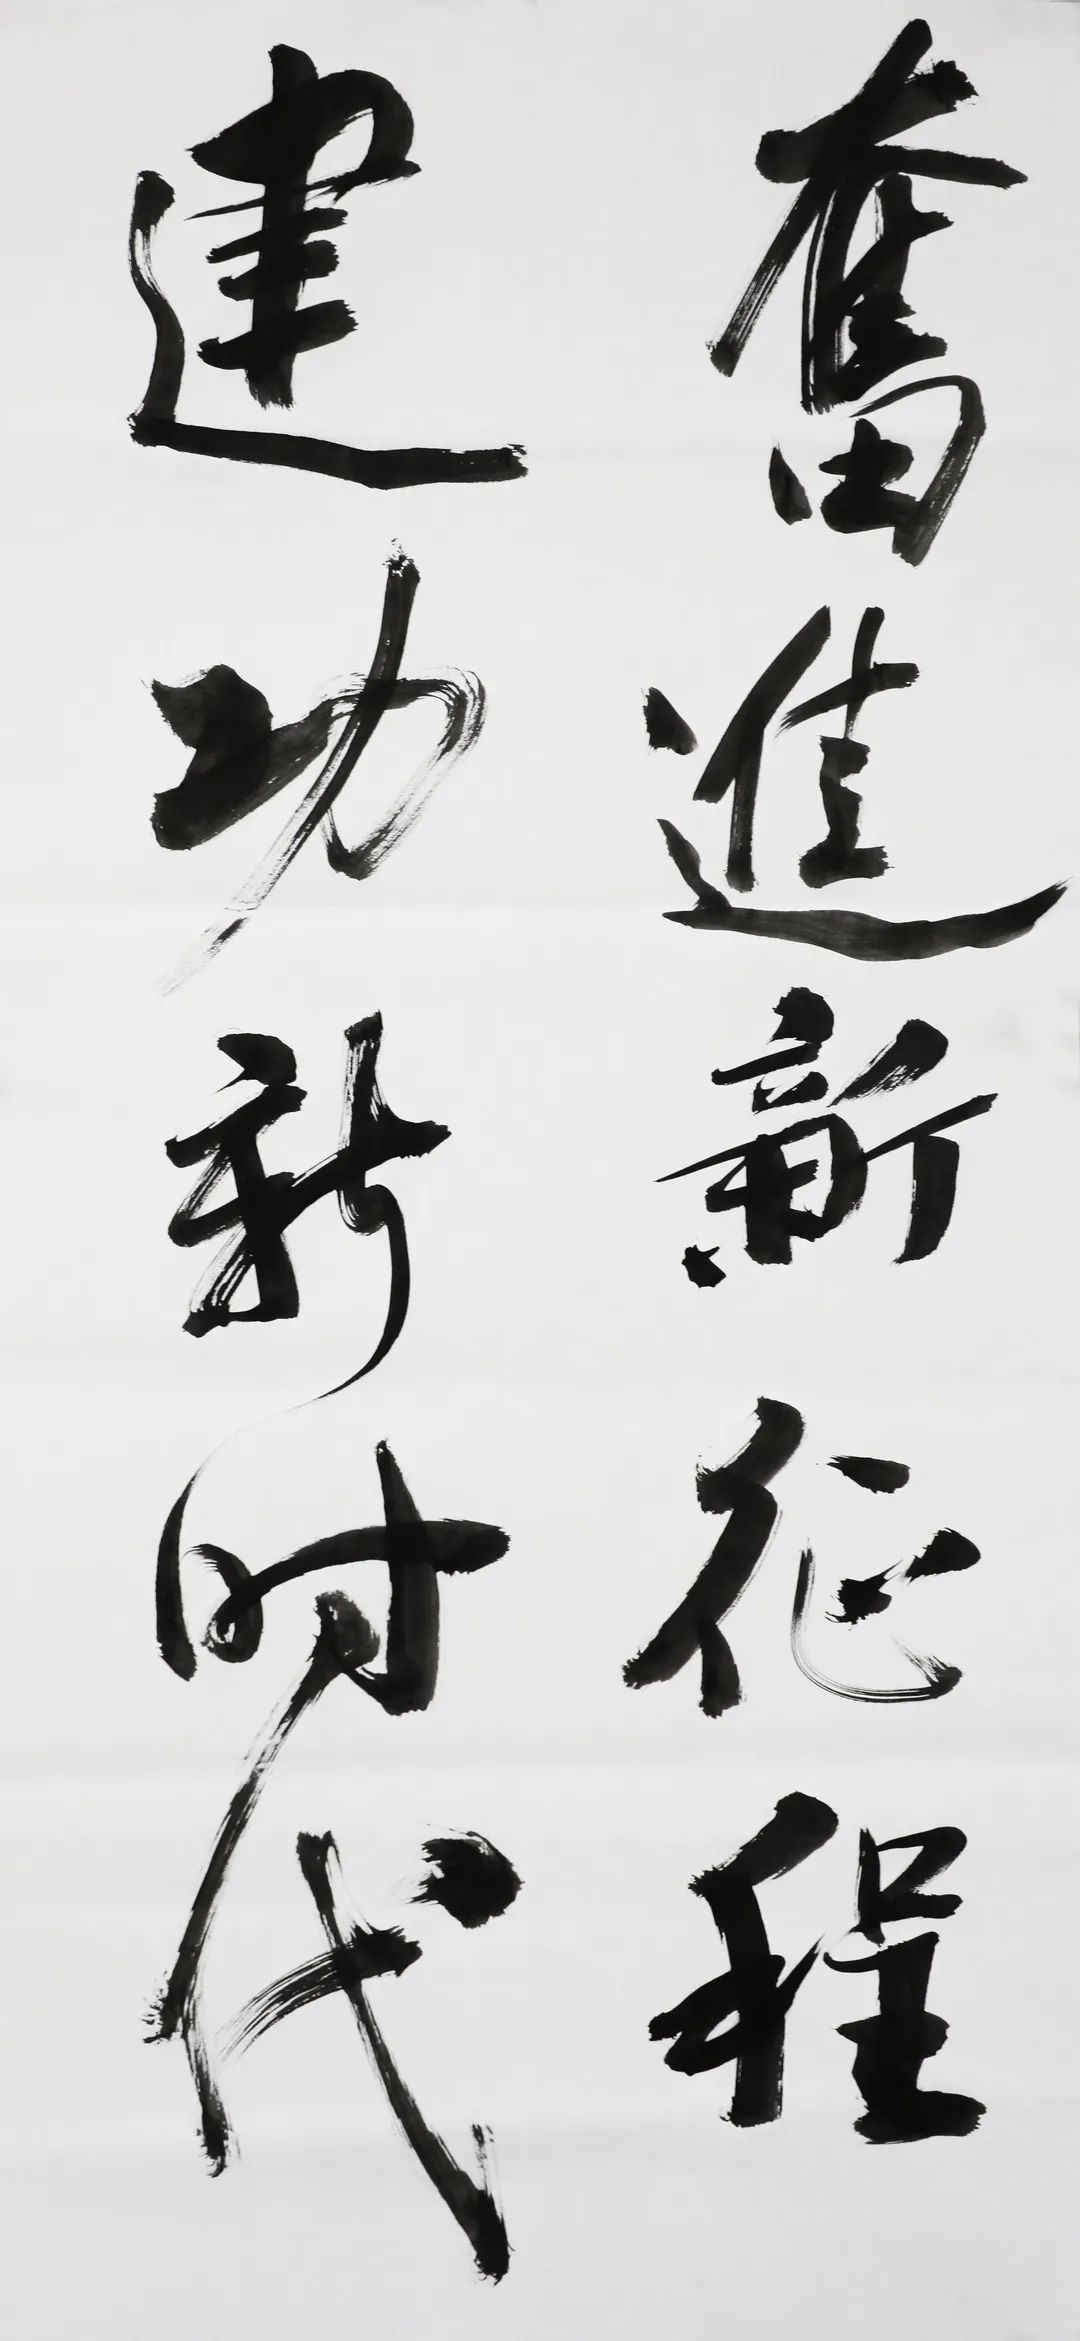 奮進新征程
建功新时代